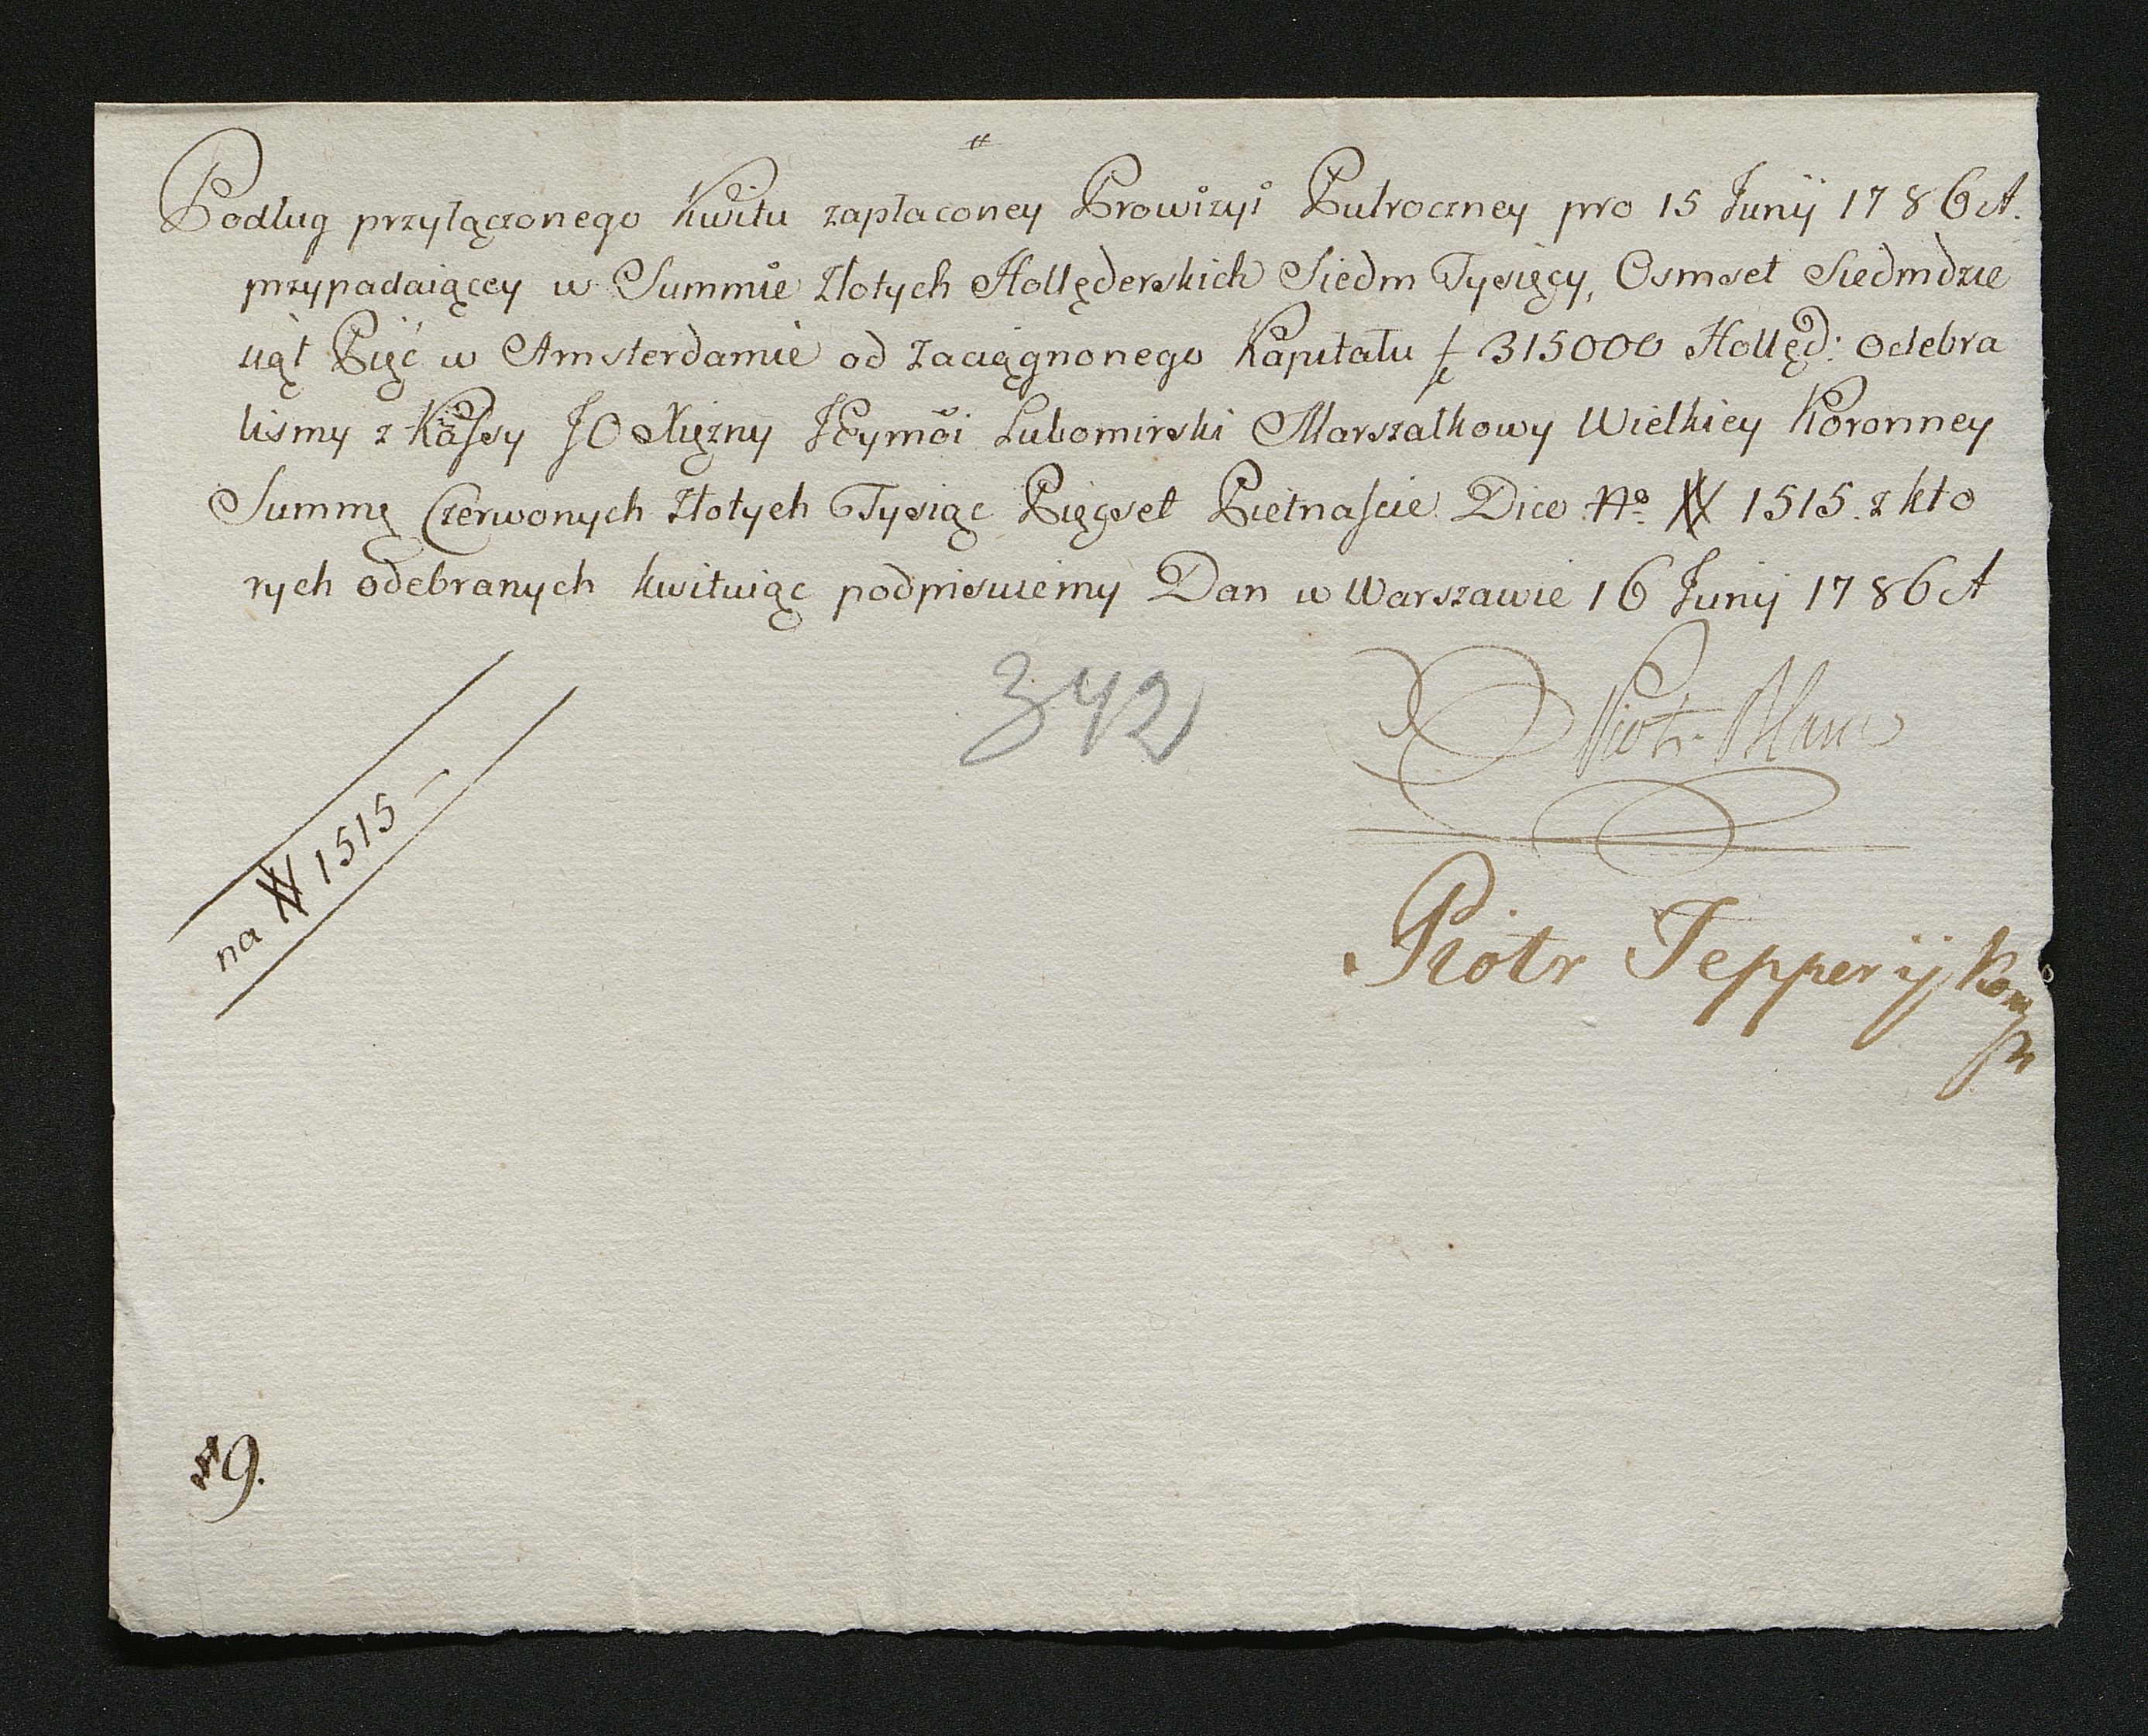 Podług przyłączonego Kwitu zapłaconey Prowizyi Pułroczney pro 15 Junij 1786 A.
przypadaiącey w Summie Złotych Hollęderskich Siedm Tysięcy, Osmset Siedmdzie
siąt Pięć w Amsterdamie od Zaciągnonego Kapitału f 315000 Hollęd: Odebra
lismy z Kassy JO Xiężny JEymći Lubomirski Marszałkowy Wielkiey Koronney
Summę Czerwonych Złotych Tysiąc Pięcset Pietnaście Dico No. # 1515. z kto
rych odebranych kwituiąc podpisuiemy Dan w Warszawie 16 Junij 1786 A
342
Piotr Blanc
na # 1515 —
Piotr Tepper ij Komp
9.